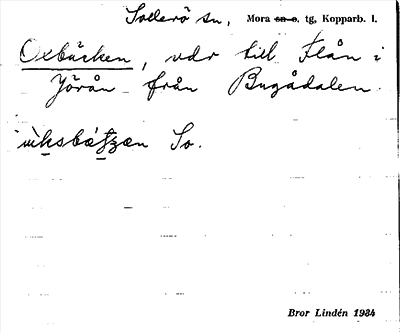 Sollerö sn, Mora sn o. tg, Kopparb. l.
Oxbäcken, vdr till Flån i
Jörån från Bugådalen.
So.
Bror Lindén 1934